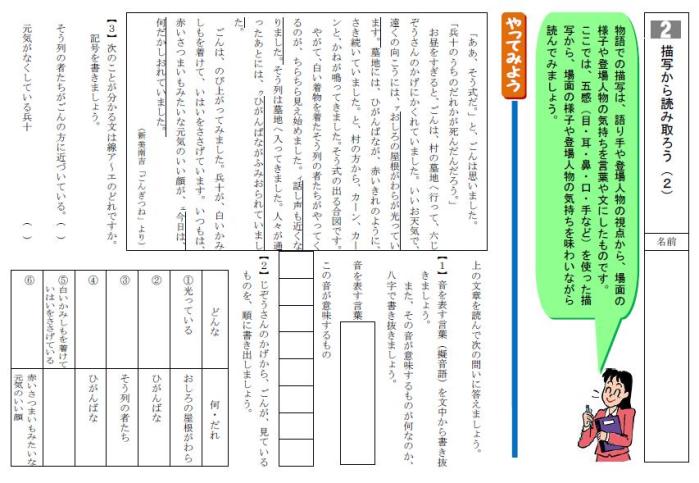 2 描写から読み取ろう（2）
名前
物語での描写は、語り手や登場人物の視点から、場面の
様子や登場人物の気持ちを言葉や文にしたものです。
ここでは、五感（目・耳・鼻・口・手など）を使った描
写から、場面の様子や登場人物の気持ちを味わいながら
読んでみましょう。
やってみよう
「ああ、そう式だ。」と、ごんは思いました。
「兵十のうちのだれかが死んだんだろう。」
お昼をすぎると、ごんは、村の墓地へ行って、六じ
ぞうさんのかげにかくれていました。いいお天気で、
遠くの向こうには、ァおしろの屋根がわらが光ってい
ます。墓地には、ひがんばなが、赤いきれのように、
さき続いていました。と、村の方から、カーン、カー
ンと、かねが鳴ってきました。そう式の出る合図です。
やがて、白い着物を着たそう列の者たちがやってく
るのが、ちらちら見え始めました。ィ話し声も近くな
りました。そう列は墓地へ入ってきました。人々が通
ったあとには、ゥひがんばながふみおられていまし
た。
ごんは、のび上がってみました。兵十が、白いかみ
しもを着けて、いはいをささげています。いつもは、
赤いさつまいもみたいな元気のいい顔が、ェ今日は、
何だかしおれていました。
（新美南吉「ごんぎつね」より）
上の文章を読んで次の問いに答えましょう。
【1】音を表す言葉（擬音語）を文中から書き抜
きましょう。
また、その音が意味するものが何なのか、
八字で書き抜きましょう。
音を表す言葉
この音が意味するもの
【2】じぞうさんのかげから、ごんが、見ている
ものを、順に書き出しましょう。
どんな
何・だれ
①光っている
おしろの屋根がわら
②
ひがんばな
③
そう列の者たち
④
ひがんばな
⑤白いかみしもを着けて
いはいをささげている
⑥
赤いさつまいもみたいな
元気のいい顔
【3】次のことが分かる文は線ア～エのどれですか。
記号を書きましょう。
そう列の者たちがごんの方に近づいている。（　）
元気がなくしている兵十（　）